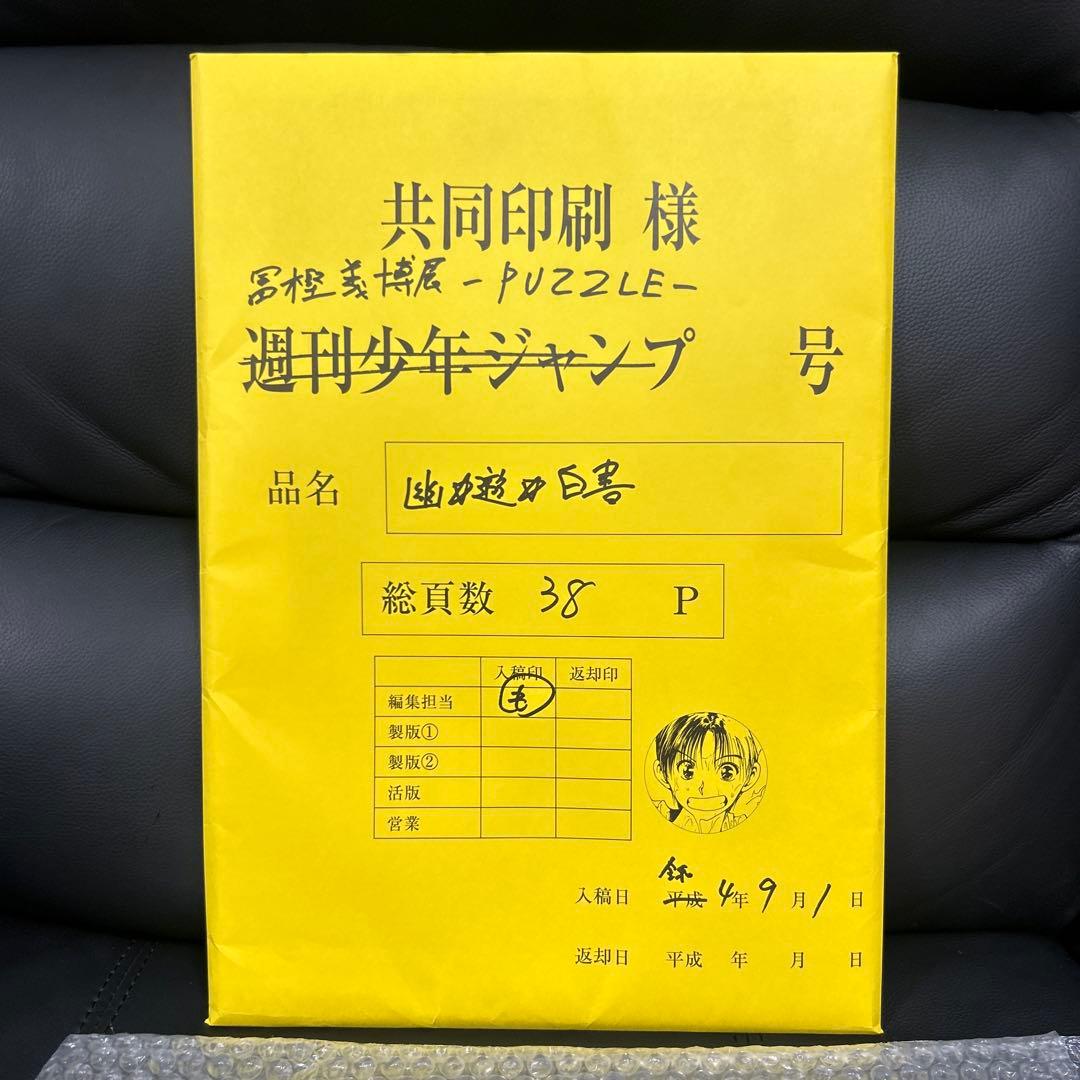 共同印刷 様
冨樫義博展 -PUZZLE-
週刊少年ジャンプ 号
品名 幽☆遊☆白書
総頁数 38 P
入稿印 返却印
編集担当
製版①
製版②
活版
営業
令和
入稿日 平成 4年 9月 1日
返却日 平成 年 月 日